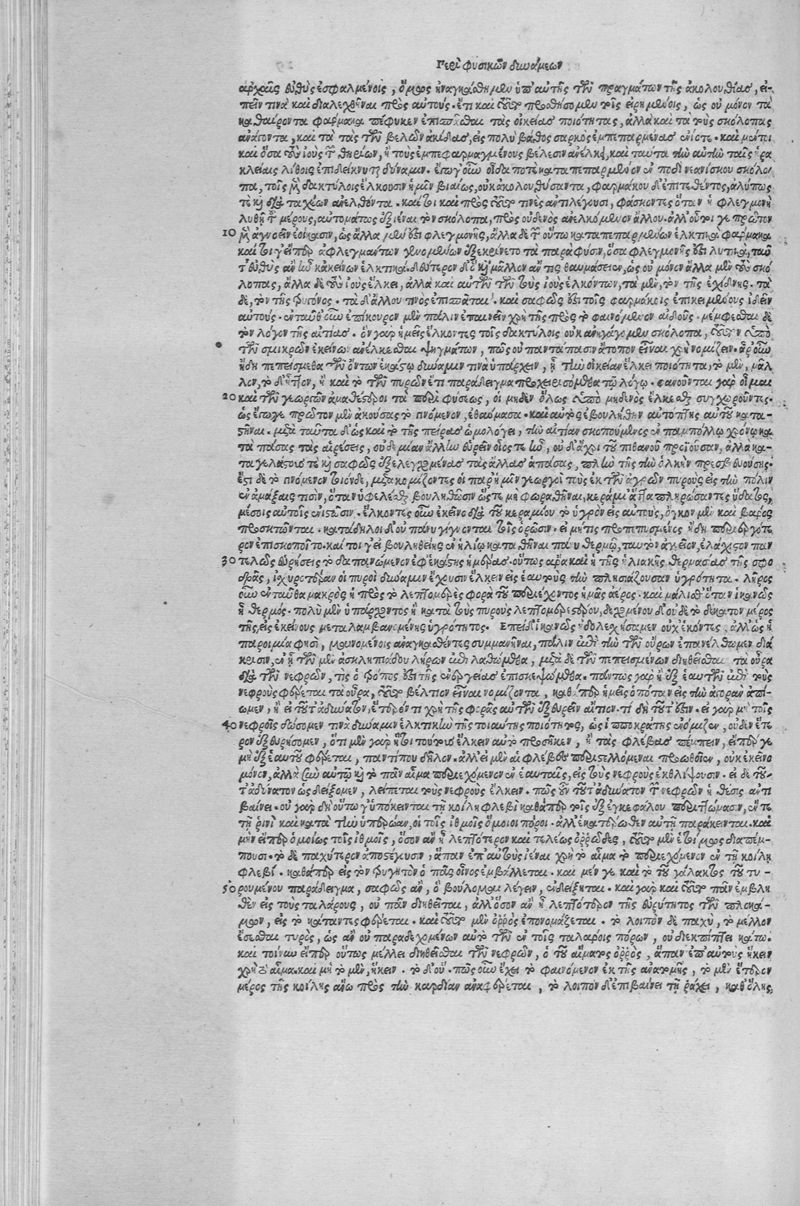 Περὶ φυσικῶν δυνάμεων
ἀρχαῖς εὐθὺς ἐσφαλμένοις, ὅμως ἠναγκάσθημεν ὑπ' αὐτῆς τῶν πραγμάτων τῆς ἀκολουθίας, εἰ-
πεῖν τινὰ καὶ διαλεχθῆναι πρὸς αὐτούς. ἔτι καὶ τοῦτο προσθήσομεν τοῖς εἰρημένοις, ὡς οὐ μόνον τὰ
καθαίροντα φάρμακα πέφυκεν ἐπισπᾶσθαι τὰς οἰκείας ποιότητας, ἀλλὰ καὶ τὰ τοὺς σκόλοπας
ἀνάγοντα, καὶ τὰ τὰς τῶν βελῶν ἀκίδας, εἰς πολὺ βάθος σαρκὸς ἐμπεπαρμένας ἐνίοτε. καὶ μέντοι
καὶ ὅσα τοὺς ἰοὺς τῶν θηρίων, ἢ τοὺς ἐμπεφαρμαγμένους βέλεσιν ἀνέλκει, καὶ ταῦτα τὴν αὐτὴν ταῖς ἡρα
κλείαις λίθοις ἐπιδείκνυται δύναμιν. ἔγωγ' οὖν οἶδά ποτε καταπεπαρμένον ἐν ποδὶ νεανίσκου σκόλο-
πα, τοῖς μὲν δακτύλοις ἕλκουσιν ἡμῖν βιαίως, οὐκ ἀκολουθήσαντα, φαρμάκου δ' ἐπιτεθέντος, ἀλύπως
τε καὶ διὰ ταχέων ἀνελθόντα. καίτοι καὶ πρὸς τοῦτό τινες ἀντιλέγουσι, φάσκοντες ὅταν ἡ φλεγμονὴ
λυθῇ τοῦ μέρους, αὐτομάτως ἐξιέναι τὸν σκόλοπα, πρὸς οὐδενὸς ἀνελκόμενον ἄλλου. ἀλλ' οὗτοί γε πρῶτον
10 μὲν ἀγνοεῖν ἐοίκασιν, ὡς ἄλλα μέν ἐστι φλεγμονῆς, ἄλλα δὲ τῶν οὕτω καταπεπαρμένων ἑλκτικὰ φάρμακα
καίτοι γ' εἴπερ ἀφλεγμάντων γενομένων ἐξεκρίνετο τὰ παρὰ φύσιν, ὅσα φλεγμονῆς ἐστι λυτικὰ, ταῦ
τ' εὐθὺς ἂν ἦν κἀκείνων ἑλκτικά. δεύτερον δὲ ὃ καὶ μᾶλλον ἄν τις θαυμάσειεν, ὡς οὐ μόνον ἄλλα μὲν τοὺς σκό
λοπας, ἄλλα δὲ τοὺς ἰοὺς ἕλκει, ἀλλὰ καὶ αὐτῶν τῶν τοὺς ἰοὺς ἑλκόντων, τὰ μὲν, τὸν τῆς ἐχίδνης. τὰ
δὲ, τὸν τῆς τρυγόνος. τὰ δ' ἄλλου τινὸς ἐπισπᾶται. καὶ σαφῶς ἔστι τοῖς φαρμάκοις ἐπικειμένους ἰδεῖν
αὐτούς. ἐνταῦθ' οὖν ἐπίκουρον μὲν πάλιν ἐπαινεῖν χρὴ τῆς πρὸς τὸ φαινόμενον αἰδοῦς. μέμφεσθαι δὲ
τὸν λόγον τῆς αἰτίας. ὃν γὰρ ἡμεῖς ἕλκοντες τοῖς δακτύλοις οὐκ ἀνηγάγομεν σκόλοπα, τοῦτον ὑπὸ
τῶν σμικρῶν ἐκείνων ἀνέλκεσθαι ψηγμάτων, πῶς οὐ παντάπασιν ἄτοπον εἶναι χρὴ νομίζειν. ἆρ' οὖν
ἤδη πεπείσμεθα τῶν ὄντων ἑκάστῳ δύναμίν τινα ὑπάρχειν, ᾗ τὴν οἰκείαν ἕλκει ποιότητα, τὸ μὲν, μᾶλ
λον, τὸ δ' ἧττον, ἢ καὶ τὸ τῶν πυρῶν ἔτι παράδειγμα προχειρισόμεθα τῷ λόγῳ. φανοῦνται γὰρ οἶμαι
20 καὶ τῶν γεωργῶν ἀμαθέστεροι τὰ περὶ φύσεως, οἱ μηδὲν ὅλως ὑπὸ μηδενὸς ἕλκεσθαι συγχωροῦντες.
ὡς ἔγωγε πρῶτον μὲν ἀκούσας τὸ γινόμενον, ἐθαύμασα. καὶ αὐτὸς ἐβουλήθην αὐτόπτης αὐτοῦ κατα-
στῆναι. μετὰ ταῦτα δὲ ὡς καὶ τὸ τῆς πείρας ὡμολόγει, τὴν αἰτίαν σκοπούμενος ἐν παμπόλλῳ χρόνῳ κα
τὰ πάσας τὰς αἱρέσεις, οὐδεμίαν ἄλλην εὑρεῖν οἷός τε ἦν, οὐδ' ἄχρι τοῦ πιθανοῦ προϊοῦσαν, ἀλλὰ κα-
ταγελάστους τε καὶ σαφῶς ἐξελεγχομένας τὰς ἄλλας ἁπάσας, πλὴν τῆς τὴν ὁλκὴν πρεσβευούσης.
ἔστι δὲ τὸ γινόμενον τοιόνδε, μετακομίζοντες οἱ παρ' ἡμῖν γεωργοὶ τοὺς ἐκ τῶν ἀγρῶν πυροὺς εἰς τὴν πόλιν
ἐν ἁμάξαις τισὶν, ὅταν ὑφελέσθαι βουληθῶσιν ὥστε μὴ φωραθῆναι, κεράμι' ἄττα πληρώσαντες ὕδατος,
μέσοις αὐτοῖς ἐνιστᾶσιν. ἕλκοντες οὖν ἐκεῖνοι διὰ τοῦ κεραμίου τὸ ὑγρὸν εἰς αὑτοὺς, ὄγκον μὲν καὶ βάρος
προσκτῶνται. κατάδηλοι δ' οὐ πάνυ γίγνονται τοῖς ὁρῶσιν. εἰ μή τις προπεπυσμένος ἤδη περιεργότε
ρον ἐπισκοποῖτο. καίτοι γ' εἰ βουληθείης ἐν ἡλίῳ καταθεῖναι πάνυ θερμῷ, ταὐτὸν ἀγγεῖον, ἐλάχιστον παν
30 τελῶς εὑρήσεις τὸ δαπανώμενον ἐφ' ἑκάστης ἡμέρας. οὕτως ἄρα καὶ τῆς ἡλιακῆς θερμασίας τῆς σφο
δρᾶς, ἰσχυροτέραν οἱ πυροὶ δύναμιν ἔχουσιν ἕλκειν εἰς ἑαυτοὺς τὴν πλησιάζουσαν ὑγρότητα. λῆρος
οὖν ἐνταῦθα μακρὸς ἡ πρὸς τὸ λεπτομερὲς φορὰ τοῦ περιέχοντος ἡμᾶς ἀέρος. καὶ μάλισθ' ὅταν ἱκανῶς
ᾖ θερμός. πολὺ μὲν ὑπάρχοντος ἢ κατὰ τοὺς πυροὺς λεπτομερεστέρου, δεχομένου δ' οὐδὲ τὸ δέκατον μέρος
τῆς, εἰς ἐκείνους μεταλαμβανομένης ὑγρότητος. Ἐπεὶ δ' ἱκανῶς ἠδολεσχήσαμεν οὐχ ἑκόντες, ἀλλ' ὡς ἡ
παροιμία φησὶ, μαινομένοις ἀναγκασθέντες συμμανῆναι, πάλιν ἐπὶ τὴν τῶν οὔρων ἐπανέλθωμεν διά
κρισιν, ἐν ᾗ τῶν μὲν ἀσκληπιάδου λήρων ἐπιλαθώμεθα, μετὰ δὲ τῶν πεπεισμένων διηθεῖσθαι τὰ οὖρα
διὰ τῶν νεφρῶν, τίς ὁ τρόπος ἐστὶ τῆς ἐνεργείας ἐπισκεψώμεθα. πάντως γὰρ ἢ ἐξ ἑαυτῶν ἐπὶ τοὺς
νεφροὺς φέρεται τὰ οὖρα, τοῦτο βέλτιον εἶναι νομίζοντα, καθάπερ ἡμεῖς ὁπόταν εἰς τὴν ἀγορὰν ἀπί-
ωμεν, ἢ εἰ τοῦτ' ἀδύνατον, ἕτερόν τι χρὴ τῆς φορᾶς αὐτῶν ἐξευρεῖν αἴτιον. τί δὴ τοῦτ' ἔστιν. εἰ γὰρ μὴ τοῖς
40 νεφροῖς δώσομεν τινὰ δύναμιν ἑλκτικὴν τῆς τοιαύτης ποιότητος, ὡς ἱπποκράτης ἐνόμιζεν, οὐδὲν ἕτε
ρον ἐξευρήσομεν, ὅτι μὲν γὰρ ἤτοι τούτους ἕλκειν αὐτὸ προσῆκεν, ἢ τὰς φλέβας πέμπειν, εἴπερ γε
μὴ ἐξ ἑαυτοῦ φέρεται, παντί που δῆλον. ἀλλ' εἰ μὲν αἱ φλέβες περιστελλόμεναι προωθοῖεν, οὐκ ἐκεῖνο
μόνον, ἀλλὰ σὺν αὐτῷ καὶ τὸ πᾶν αἷμα περιεχόμενον ἐν ἑαυταῖς, εἰς τοὺς νεφροὺς ἐκθλίψουσιν. εἰ δὲ τοῦ-
τ' ἀδύνατον ὡς δείξομεν, λείπεται τοὺς νεφροὺς ἕλκειν. πῶς οὖν τοῦτ' ἀδύνατον τῶν νεφρῶν ἡ θέσις ἀντι
βαίνει. οὐ γὰρ δὴ οὕτω γ' ὑπόκεινται τῇ κοίλῃ φλεβὶ καθάπερ τοῖς ἐξ ἐγκεφάλου περιττώμασιν, ἔν τε
τῇ ῥινὶ καὶ κατὰ τὴν ὑπερῴαν, οἱ τοῖς ἠθμοῖς ὅμοιοι πόροι. ἀλλ' ἑκατέρωθεν αὐτῇ παράκεινται. καὶ
μὴν εἴπερ ὁμοίως τοῖς ἠθμοῖς, ὅσον ἂν ᾖ λεπτότερον καὶ τελέως ὀρρῶδες, τοῦτο μὲν ἑτοίμως διαπέμ-
πουσι. τὸ δὲ παχύτερον ἀποστέγουσιν, ἅπαν ἐπ' αὐτοὺς ἰέναι χρὴ τὸ αἷμα τὸ περιεχόμενον ἐν τῇ κοίλῃ
φλεβί. καθάπερ εἰς τὸν τρύγητον ὁ πᾶς οἶνος ἐμβάλλεται. καὶ μέν γε καὶ τὸ τοῦ γάλακτος τοῦ τυ-
50 ρουμένου παράδειγμα, σαφῶς ἂν, ὃ βούλομαι λέγειν, ἐνδείξηται. καὶ γὰρ καὶ τοῦτο πᾶν ἐμβλη
θὲν εἰς τοὺς ταλάρους, οὐ πᾶν διηθεῖται, ἀλλ' ὅσον ἂν ᾖ λεπτότερον τῆς εὐρύτητος τῶν πλοκά-
μων, εἰς τὸ κάταντες φέρεται. καὶ τοῦτο μὲν ὀρρὸς ἐπονομάζεται. τὸ λοιπὸν δὲ παχὺ, τὸ μέλλον
ἔσεσθαι τυρὸς, ὡς ἂν οὐ παραδεχομένων αὐτὸ τῶν ἐν τοῖς ταλάροις πόρων, οὐ διεκπίπτει κάτω.
καὶ τοίνυν εἴπερ οὕτω μέλλει διηθεῖσθαι τῶν νεφρῶν, ὁ τοῦ αἵματος ὀρρὸς, ἅπαν ἐπ' αὐτοὺς ἥκειν
χρὴ τὸ αἷμα. καὶ μὴ τὸ μὲν, ἥκειν. τὸ δ' οὔ. πῶς οὖν ἔχει τὸ φαινόμενον ἐκ τῆς ἀνατομῆς, τὸ μὲν ἕτερον
μέρος τῆς κοίλης ἄνω πρὸς τὴν καρδίαν ἀναφέρεται, τὸ λοιπὸν δ' ἐπιβαίνει τῇ ῥάχει, καθ' ὅλης